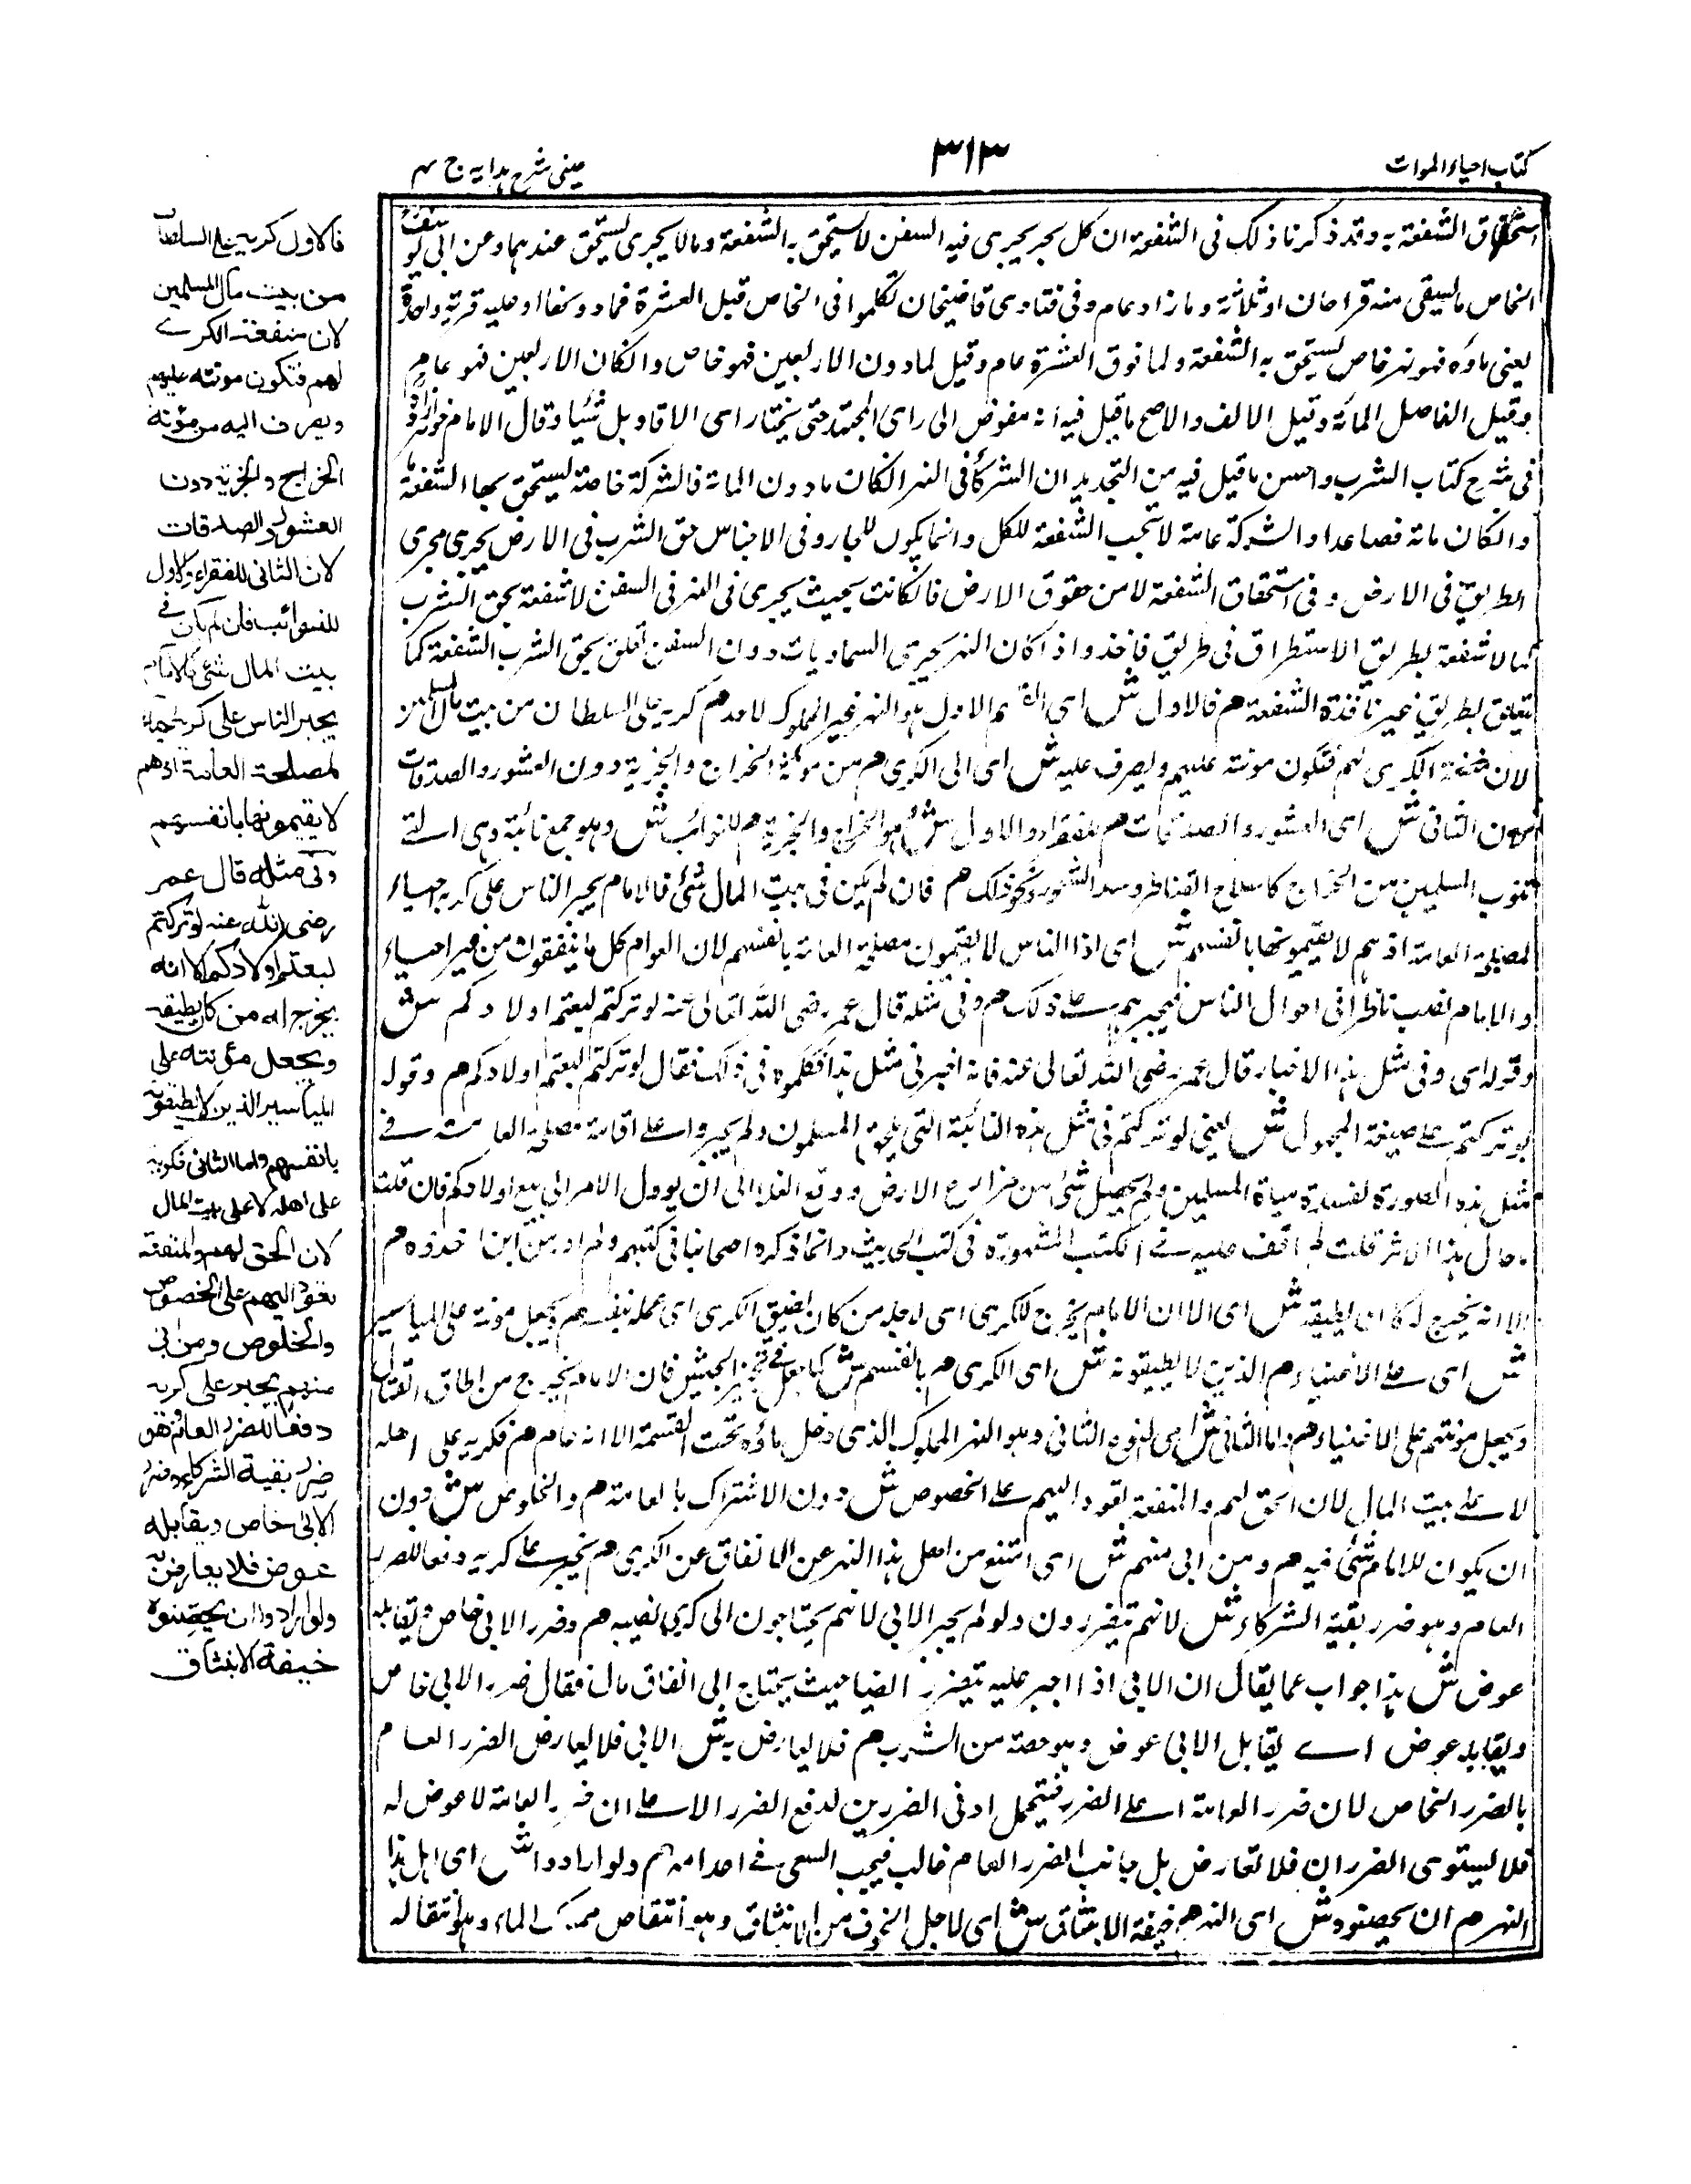 كتاب احياء الموات
٣١٣
عينى شرح هدايه ج ٤
استحقاق الشفعة به وقد ذكرنا ذلك فى الشفعة ان كل بحر يجرى فيه السفن لا يستحق به الشفعة وما لا يجرى يستحق عندهما وعن ابى يوسف
الخاص ما يسقى منه قراحان او ثلاثة وما زاد عام وفى فتاوى قاضيخان تكلموا فى الخاص قيل العشرة فما دونها او عليه قرية واحدة
يعنى ماؤه فهو نهر خاص يستحق به الشفعة ولما فوق العشرة عام وقيل لما دون الاربعين فهو خاص وان كان الاربعين فهو عام
وقيل الفاصل المائة وقيل الالف والاصح ما قيل فيه انه مفوض الى راى المجتهد حتى يختار اى الاقاويل شيئا وقال الامام خواهرزاده
فى شرح كتاب الشرب واحسن ما قيل فيه من التحديد ان الشركاء فى النهر ان كان ما دون المائة فالشركة خاصة يستحق بها الشفعة
وان كان مائة فصاعدا والشركة عامة لا تجب الشفعة للكل وانما يكون للجار وفى الاجناس حق الشرب فى الارض يجرى مجرى
الطريق فى الارض وفى استحقاق الشفعة لا من حقوق الارض فان كانت بحيث يجرى فى النهر فى السفن لا شفعة بحق الشرب
كما لا شفعة بطريق الاستطراق فى طريق نافذ واذا كان النهر يجرى السماديات دون السفن تعلق بحق الشرب الشفعة كما
يتعلق بطريق غير نافذة الشفعة هم فالاول ش اى القسم الاول هو النهر غير المملوك لاحد هم كريه على السلطان من بيت مال المسلمين
لان منفعة الكرى لهم فتكون مونته عليهم ويصرف عليه ش اى الى الكرى هم من مونة الخراج والجزية دون العشور والصدقات
لان الثانى ش اى العشور والصدقات هم للفقراء والاول ش هو الخراج والجزية هم للنوائب ش وهو جمع نائبة وهى التى
تنوب المسلمين من الخراج كاصلاح القناطر وسد الثغور ونحو ذلك هم فان لم يكن فى بيت المال شئ فالامام يجبر الناس على كريه احياء
لمصلحة العامة اذ هم لا يقيمونها بانفسهم ش اى اذا الناس لا يقيمون مصلحة العامة بانفسهم لان العوام كل ما ينفقون من غير احياء
والامام نصب ناظرا فى احوال الناس فيجبرهم على ذلك هم وفى مثله قال عمر رضى الله تعالى عنه لو تركتم لبعتم اولادكم ش
وقوله اى وفى مثل هذا الاخبار قال عمر رضى الله تعالى عنه فانه اخبر فى مثل هذا فكلموه فى ذلك فقال لو تركتم لبعتم اولادكم هم وقوله
لو تركتم على صيغة المجهول ش يعنى لو تركتم فى مثل هذه النائبة التى يلحق المسلمون ولم يجبروا على اقامة مصلحة العامة فى
مثل هذه الصورة لفسدة حياة المسلمين ولم يحصل شئ من مزارع الارض ووقع الغلا الى ان يوول الامر الى بيع اولادكم فان قلت
ما حال هذا الاثر قلت لم اقف عليه فى الكتب المشهورة فى كتب الحديث وانما ذكره اصحابنا فى كتبهم ولم ادر من اين اخذوه هم
الا انه يخرج له كان يطيقه ش اى الا ان الامام يخرج للكرى اى لاجله من كان يطيق الكرى اى عمله بنفسه هم ويجعل مونته على المياسير
ش اى على الاغنياء هم الذين لا يطيقونه ش اى الكرى هم بانفسهم ش كما يفعل فى تجهيز الجيش فان الامام يخرج من اطاق القتال
ويجعل مونتهم على الاغنياء هم واما الثانى ش اى النوع الثانى وهو النهر المملوك الذى دخل ماؤه تحت القسمة الا انه عام هم فكريه على اهله
لا على بيت المال لان الحق لهم والمنفعة تعود اليهم على الخصوص ش دون الاشتراك بالعامة هم والخلوص ش دون
ان يكون للامام شئ فيه هم ومن ابى منهم ش اى امتنع من اهل هذا النهر عن الانفاق عن الكرى هم يجبر على كريه دفعا للضرر
العام وهو ضرر بقية الشركاء ش لانهم يتضررون ولو لم يجبر الابى لانهم يحتاجون الى كرى نصيبه هم وضرر الابى خاص ويقابله
عوض ش هذا جواب عما يقال ان الابى اذا اجبر عليه يتضرر ايضا حيث يحتاج الى انفاق ماله فقال ضرر الابى خاص
ويقابله عوض اى يقابل الابى عوض وهو حصته من الشرب هم فلا يعارض به ش الابى فلا يعارض الضرر العام
بالضرر الخاص لان ضرر العامة اعلى الضرر فيتحمل ادنى الضررين لدفع الضرر الاعلى ان ضرر العامة لا عوض له
فلا يستوى الضرران فلا تعارض بل جانب الضرر العام غالب فيجب السعى فى اعدامه هم ولو ارادوا ش اى اهل هذا
النهر هم ان يحصنوه ش اى النهر هم خيفة الانبثاق ش اى لاجل الخوف من الانبثاق وهو انتقاص الماء وهو انتقاله
فالاول كريه على السلطان
من بيت مال المسلمين
لان منفعة الكرى
لهم فتكون مونته عليهم
ويصرف اليه من مؤنة
الخراج والجزية دون
العشور والصدقات
لان الثانى للفقراء والاول
للنوائب فان لم يكن فى
بيت المال شئ فالامام
يجبر الناس على كريه احياء
لمصلحة العامة اذ هم
لا يقيمونها بانفسهم
وفى مثله قال عمر
رضى الله عنه لو تركتم
لبعتم اولادكم الا انه
يخرج له من كان يطيقه
ويجعل مؤنته على
المياسير الذين لا يطيقونه
بانفسهم واما الثانى فكريه
على اهله لا على بيت المال
لان الحق لهم والمنفعة
تعود اليهم على الخصوص
والخلوص ومن ابى
منهم يجبر على كريه
دفعا للضرر العام وهو
ضرر بقية الشركاء وضرر
الابى خاص ويقابله
عوض فلا يعارض به
ولو ارادوا ان يحصنوه
خيفة الانبثاق